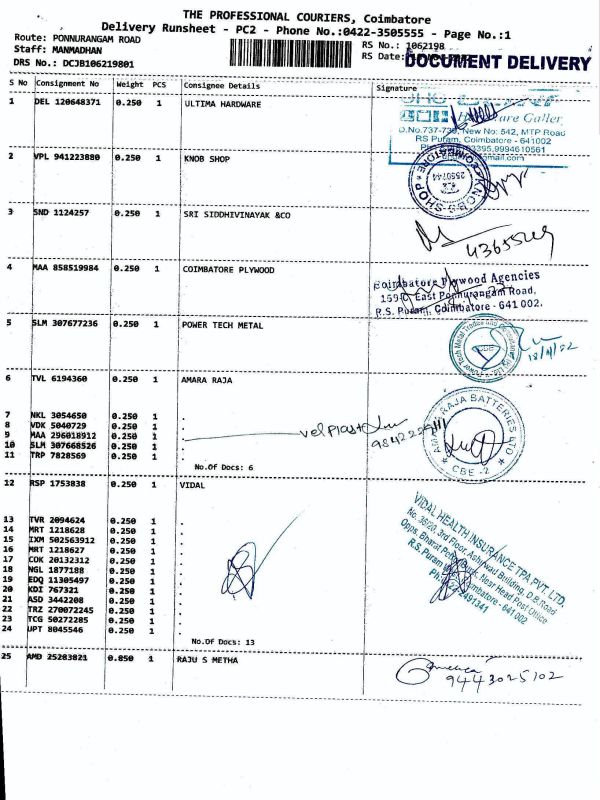 THE PROFESSIONAL COURIERS, Coimbatore
Delivery Runsheet - PC2 - Phone No.:0422-3505555 - Page No.:1
Route: PONNURANGAM ROAD
Staff: MANMADHAN
DRS No.: DCJB106219801
RS No.: 1062198
RS Date:
DOCUMENT DELIVERY
S No Consignment No Weight PCS Consignee Details Signature
1 DEL 120648371 0.250 1 ULTIMA HARDWARE
No.737-739, New No: 542, MTP Road
RS Puram, Coimbatore - 641002
2 VPL 941223880 0.250 1 KNOB SHOP
KNOB SHOP COIMBATORE
2550744
3 SND 1124257 0.250 1 SRI SIDDHIVINAYAK &CO
4 MAA 858519984 0.250 1 COIMBATORE PLYWOOD
Coimbatore Plywood Agencies
159-C, East Ponnurangam Road,
R.S. Puram, Coimbatore - 641 002.
5 SLM 307677236 0.250 1 POWER TECH METAL
6 TVL 6194360 0.250 1 AMARA RAJA
AMARA RAJA BATTERIES LTD
CBE-2
7 NKL 3054650 0.250 1 .
8 VDK 5040729 0.250 1 .
9 MAA 296018912 0.250 1 .
velplast
10 SLM 307668526 0.250 1 .
11 TRP 7828569 0.250 1 .
No.Of Docs: 6
12 RSP 1753838 0.250 1 VIDAL
VIDAL HEALTH INSURANCE TPA PVT. LTD.
No. 36/20, 3rd Floor, Ashirvad Building, D.B.Road
Opps. Bharat Petrol Bunk, Near Head Post Office
R.S. Puram Coimbatore - 641 002
13 TVR 2094624 0.250 1 .
14 MRT 1218628 0.250 1 .
15 IXM 502563912 0.250 1 .
16 MRT 1218627 0.250 1 .
17 COK 20132312 0.250 1 .
18 NGL 1877188 0.250 1 .
19 EDQ 11305497 0.250 1 .
20 KDI 767321 0.250 1 .
21 ASD 3442208 0.250 1 .
22 TRZ 270072245 0.250 1 .
23 TCG 50272285 0.250 1 .
24 UPT 8045546 0.250 1 .
No.Of Docs: 13
25 AMD 25283821 0.850 1 RAJU S METHA
9443025102